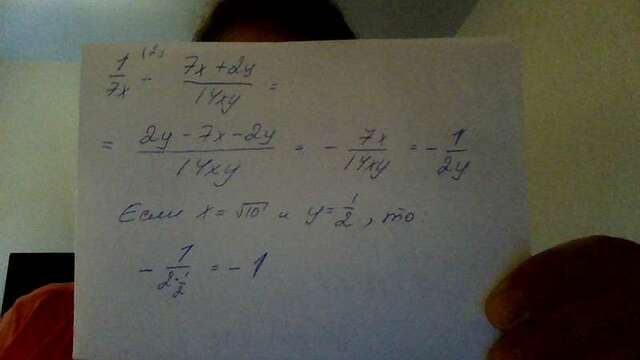 1/7x (2y - 7x+2y/14xy =
= 2y-7x-2y/14xy = - 7x/14xy = - 1/2y
Если x = √10 и y = 1/2, то:
- 1/2·1/2 = -1